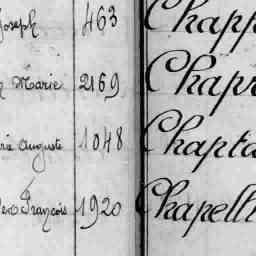 Joseph 463 Chapp
Marie 2169 Chapr
Auguste 1048 Chapta
François 1920 Chapell